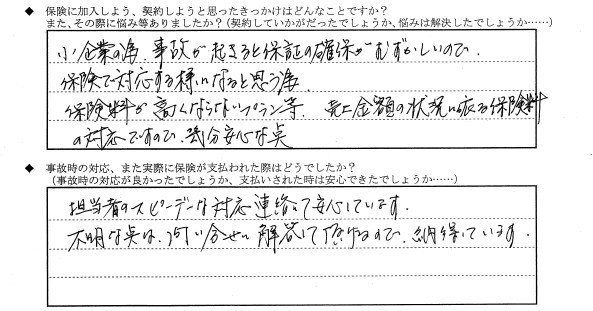 ◆ 保険に加入しよう、契約しようと思ったきっかけはどんなことですか？
また、その際に悩み等ありましたか？（契約していかがだったでしょうか、悩みは解決したでしょうか……）
小企業の為、事故が起きると保証の確保がむずかしいので、
保険で対応する様になると思う為
保険料が高くならないプラン等、売上金額の状況に依る保険料
の対応ですので、幾分安心な点
◆ 事故時の対応、また実際に保険が支払われた際はどうでしたか？
（事故時の対応が良かったでしょうか、支払いされた時は安心できたでしょうか……）
担当者のスピーデーな対応、連絡にて安心しています。
不明な点は、問い合せに解答して頂けるので、納得しています。